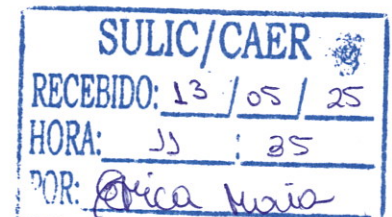 SULIC/CAER
RECEBIDO: 13 / 05 / 25
HORA: 11 : 35
POR: Érica Maia